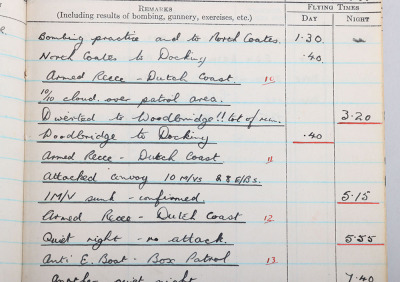 REMARKS
(Including results of bombing, gunnery, exercises, etc.)
FLYING TIMES
DAY NIGHT
Bombing practice and to North Coates. 1.30
North Coates to Docking .40
Armed Recce - Dutch Coast.
10/10 cloud over patrol area.
Diverted to Woodbridge!! Lot of 3.20
Woodbridge to Docking .40
Armed Recce - Dutch Coast 11
Attacked convoy 10 M/Vs & 8 E/Bs.
1 M/V sunk - confirmed 5.15
Armed Recce - Dutch Coast 12
Quiet night - no attack. 5.55
Anti E. Boat - Box Patrol 13
Another quiet night 7.40